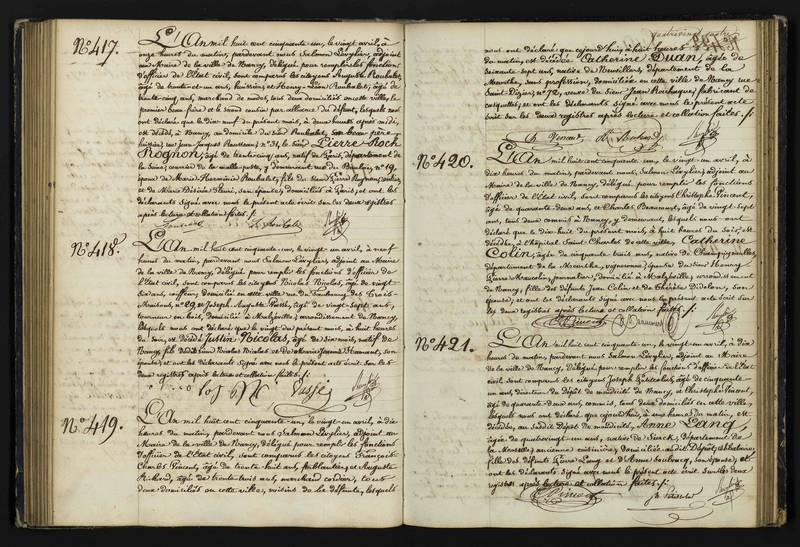 N.º 417.
L'An mil huit cent cinquante-un, le vingt avril, à
onze heures du matin, pardevant nous Salmon Lévylier, adjoint
au Maire de la ville de Nancy, délégué pour remplir les fonctions
d'officier de l'Etat civil, sont comparus les citoyens Auguste Roubalet,
âgé de trente-et-un ans, huissier, et Henry-Léon Roubalet, âgé de
trente-cinq ans, marchand de modes, tous deux domiciliés en cette ville, le
premier beau-frère et le second cousin par alliance du défunt, lesquels nous
ont déclaré que le dix neuf du présent mois, à deux heures après midi,
est décédé, à Nancy, au domicile du sieur Roubalet, son beau-père,
huissier, rue Jean-Jacques Rousseau, n.º 31, le sieur Pierre Roch
Rognon, âgé de trente-cinq ans, natif de Paris, département de
la Seine, courrier de la malle-poste, y demeurant rue du Bouloy, n.º 19,
époux de Marie-Herminie Roubalet, fils de sieur Pierre Rognon, rentier,
et de Marie Désirée son épouse, domiciliés à Paris; et ont les
déclarants signé avec nous le présent acte écrit sur les deux registres
après lecture et collation faites. /.
N.º 418.
L'An mil huit cent cinquante-un, le vingt-un avril, à neuf
heures du matin, pardevant nous Salmon Lévylier adjoint au Maire
de la ville de Nancy, délégué pour remplir les fonctions d'officier de
l'Etat civil, sont comparus les citoyens Nicolas Nicolas, âgé de vingt-
six ans, coiffeur, domicilié en cette ville rue du Faubourg des Trois-
Maisons, n.º 29, et Joseph-Auguste Vassé, âgé de vingt-sept ans,
tourneur en bois, domicilié à Malzéville, arrondissement de Nancy,
lesquels nous ont déclaré que le vingt du présent mois, à huit heures
du soir, est décédé Justin Nicolas, âgé de six mois, natif de
Nancy, fils dudit sieur Nicolas Nicolas et de Marie-Jeanne son
épouse; et ont les déclarants signé avec nous le présent acte écrit sur les
deux registres après lecture et collation faites. /.
Vassé
N.º 419.
L'An mil huit cent cinquante-un, le vingt-un avril, à dix
heures du matin, pardevant nous Salmon Lévylier, adjoint au
Maire de la ville de Nancy, délégué pour remplir les fonctions
d'officier de l'Etat civil, sont comparus les citoyens François
Charles Vincent, âgé de trente-huit ans, ferblantier, et Auguste
Richard, âgé de trente-trois ans, marchand cordier, tous
deux domiciliés en cette ville, voisins de la défunte, lesquels
nous ont déclaré que cejourd'huy, à huit heures
du matin, est décédée Catherine Duan, âgée de
soixante-sept ans, native de Neuviller, département de la
Meurthe, sans profession, domiciliée en cette ville de Nancy rue
Saint-Dizier, n.º 72, veuve du sieur Jean fabricant de
casquettes; et ont les déclarants signé avec nous le présent acte
écrit sur les deux registres après lecture et collation faites. /.
Ch. Vincent
N.º 420.
L'An mil huit cent cinquante-un, le vingt-un avril, à
dix heures du matin, pardevant nous, Salmon Lévylier, adjoint au
Maire de la ville de Nancy, délégué pour remplir les fonctions
d'officier de l'Etat civil, sont comparus les citoyens Christophe Vincent,
âgé de quarante-deux ans, et Charles Baraaud, âgé de vingt-sept
ans, tous deux commis à Nancy, y demeurant, lesquels nous ont
déclaré que le dix-huit du présent mois, à huit heures du soir, est
décédée, à l'hôpital Saint Charles de cette ville, Catherine
Colin, âgée de cinquante-trois ans, native de Champigneulles,
département de la Meurthe, vigneronne, épouse du sieur Henry
Pierre journalier, domicilié à Malzéville, arrondissement
de Nancy, fille des défunts Jean Colin et de Thérèse son
épouse; et ont les déclarants signé avec nous le présent acte écrit sur
les deux registres après lecture et collation faites. /.
Vincent
N.º 421.
L'An mil huit cent cinquante-un, le vingt-un avril, à dix
heures du matin, pardevant nous Salmon Lévylier, adjoint au Maire
de la ville de Nancy, délégué pour remplir les fonctions d'officier de l'Etat
civil, sont comparus les citoyens Joseph âgé de cinquante-
un ans, directeur du dépôt de mendicité de Nancy, et Christophe Vincent,
âgé de quarante-deux ans, commis, tous deux domiciliés en cette ville,
lesquels nous ont déclaré que cejourd'huy, à cinq heures du matin, est
décédée, au susdit Dépôt de mendicité, Anne Lang,
âgée de quatrevingt-un ans, native de Sierck, Département de
la Moselle, ancienne cuisinière, domiciliée audit Dépôt, célibataire,
fille des défunts Pierre Lang et d'Anne son épouse; et
ont les déclarants signé avec nous le présent acte écrit sur les deux
registres après lecture et collation faites. /.
Vincent